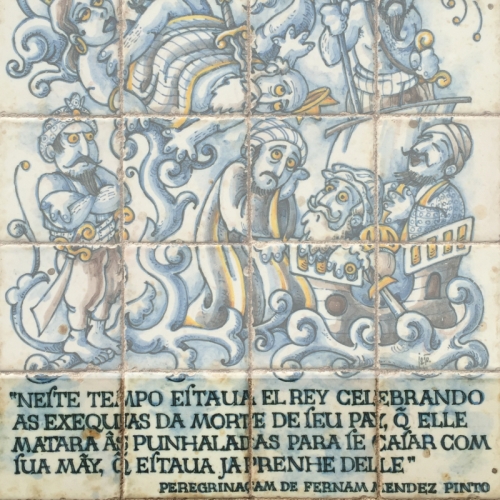 "NEſTE TEMPO EſTAUA EL REY CELEBRANDO
AS EXEQUIAS DA MORTE DE ſEU PAY, Q̃ ELLE
MATARA ÂS PUNHALADAS PARA ſE CAſAR COM
ſUA MÃY, Q̃ EſTAUA JA PRENHE DELLE"
PEREGRINAÇAM DE FERNAM MENDEZ PINTO